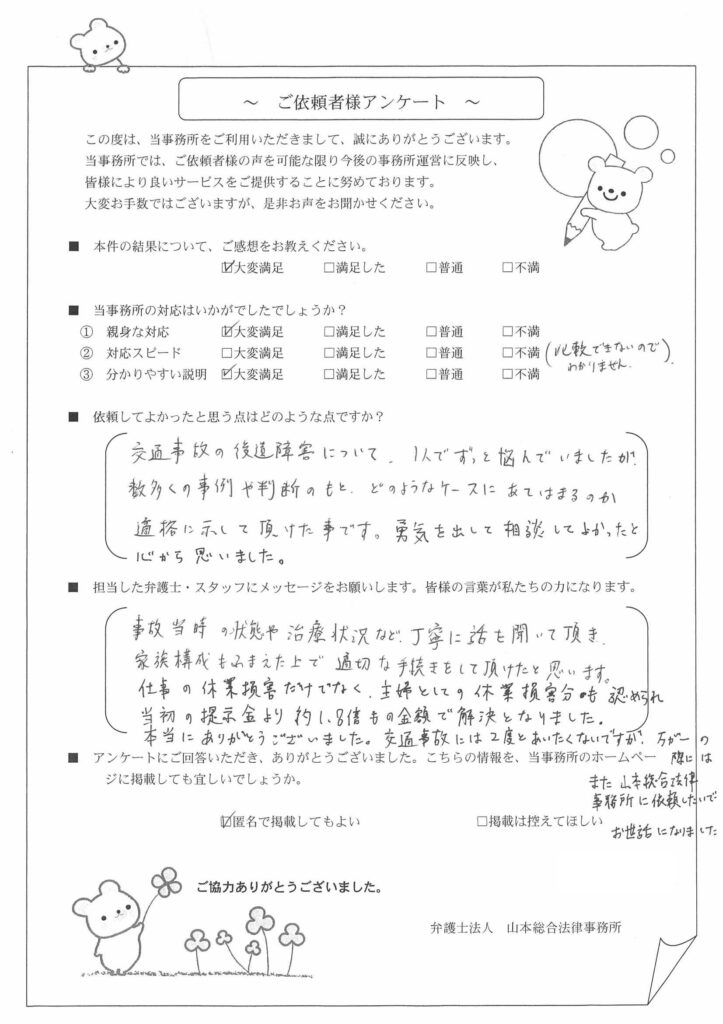 ～ ご依頼者様アンケート ～
この度は、当事務所をご利用いただきまして、誠にありがとうございます。
当事務所では、ご依頼者様の声を可能な限り今後の事務所運営に反映し、
皆様により良いサービスをご提供することに努めております。
大変お手数ではございますが、是非お声をお聞かせください。
■ 本件の結果について、ご感想をお教えください。
☑大変満足 □満足した □普通 □不満
■ 当事務所の対応はいかがでしたでしょうか？
① 親身な対応 ☑大変満足 □満足した □普通 □不満
② 対応スピード □大変満足 □満足した □普通 □不満 (比較できないので
わかりません.)
③ 分かりやすい説明 ☑大変満足 □満足した □普通 □不満
■ 依頼してよかったと思う点はどのような点ですか？
交通事故の後遺障害について、1人でずっと悩んでいましたが.
数多くの事例や判断のもと、どのようなケースにあてはまるのか
適格に示して頂けた事です。勇気を出して相談してよかったと
心から思いました。
■ 担当した弁護士・スタッフにメッセージをお願いします。皆様の言葉が私たちの力になります。
事故当時の状態や治療状況など、丁寧に話を聞いて頂き.
家族構成もふまえた上で適切な手続きをして頂けたと思います。
仕事の休業損害だけでなく、主婦としての休業損害分も認められ
当初の提示金より約1.8倍もの金額で解決となりました.
本当にありがとうございました。交通事故には2度とあいたくないですが、万が一の
際には
また山本総合法律
事務所に依頼したいで
お世話になりました
■ アンケートにご回答いただき、ありがとうございました。こちらの情報を、当事務所のホームペー
ジに掲載しても宜しいでしょうか。
☑匿名で掲載してもよい □掲載は控えてほしい
ご協力ありがとうございました。
弁護士法人 山本総合法律事務所